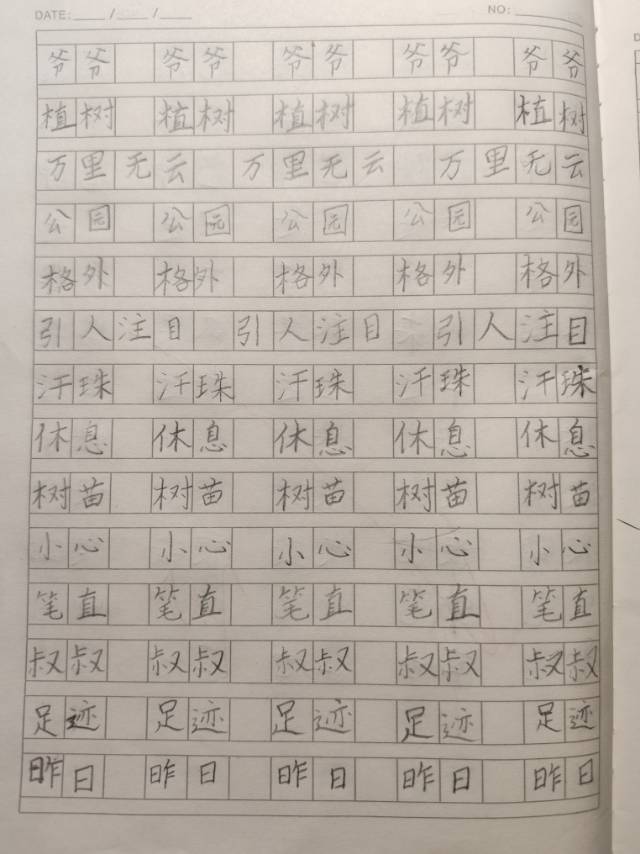 DATE: / / NO:
爷爷 爷爷 爷爷 爷爷 爷爷
植树 植树 植树 植树 植树
万里无云 万里无云 万里无云
公园 公园 公园 公园 公园
格外 格外 格外 格外 格外
引人注目 引人注目 引人注目
汗珠 汗珠 汗珠 汗珠 汗珠
休息 休息 休息 休息 休息
树苗 树苗 树苗 树苗 树苗
小心 小心 小心 小心 小心
笔直 笔直 笔直 笔直 笔直
叔叔 叔叔 叔叔 叔叔 叔叔
足迹 足迹 足迹 足迹 足迹
昨日 昨日 昨日 昨日 昨日